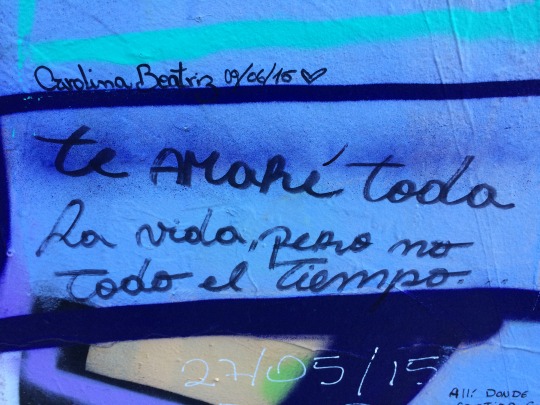 Carolina Beatriz 09/06/15 ♡
te amaré toda
la vida, pero no
todo el tiempo.
27/05/15
Allí DONDE